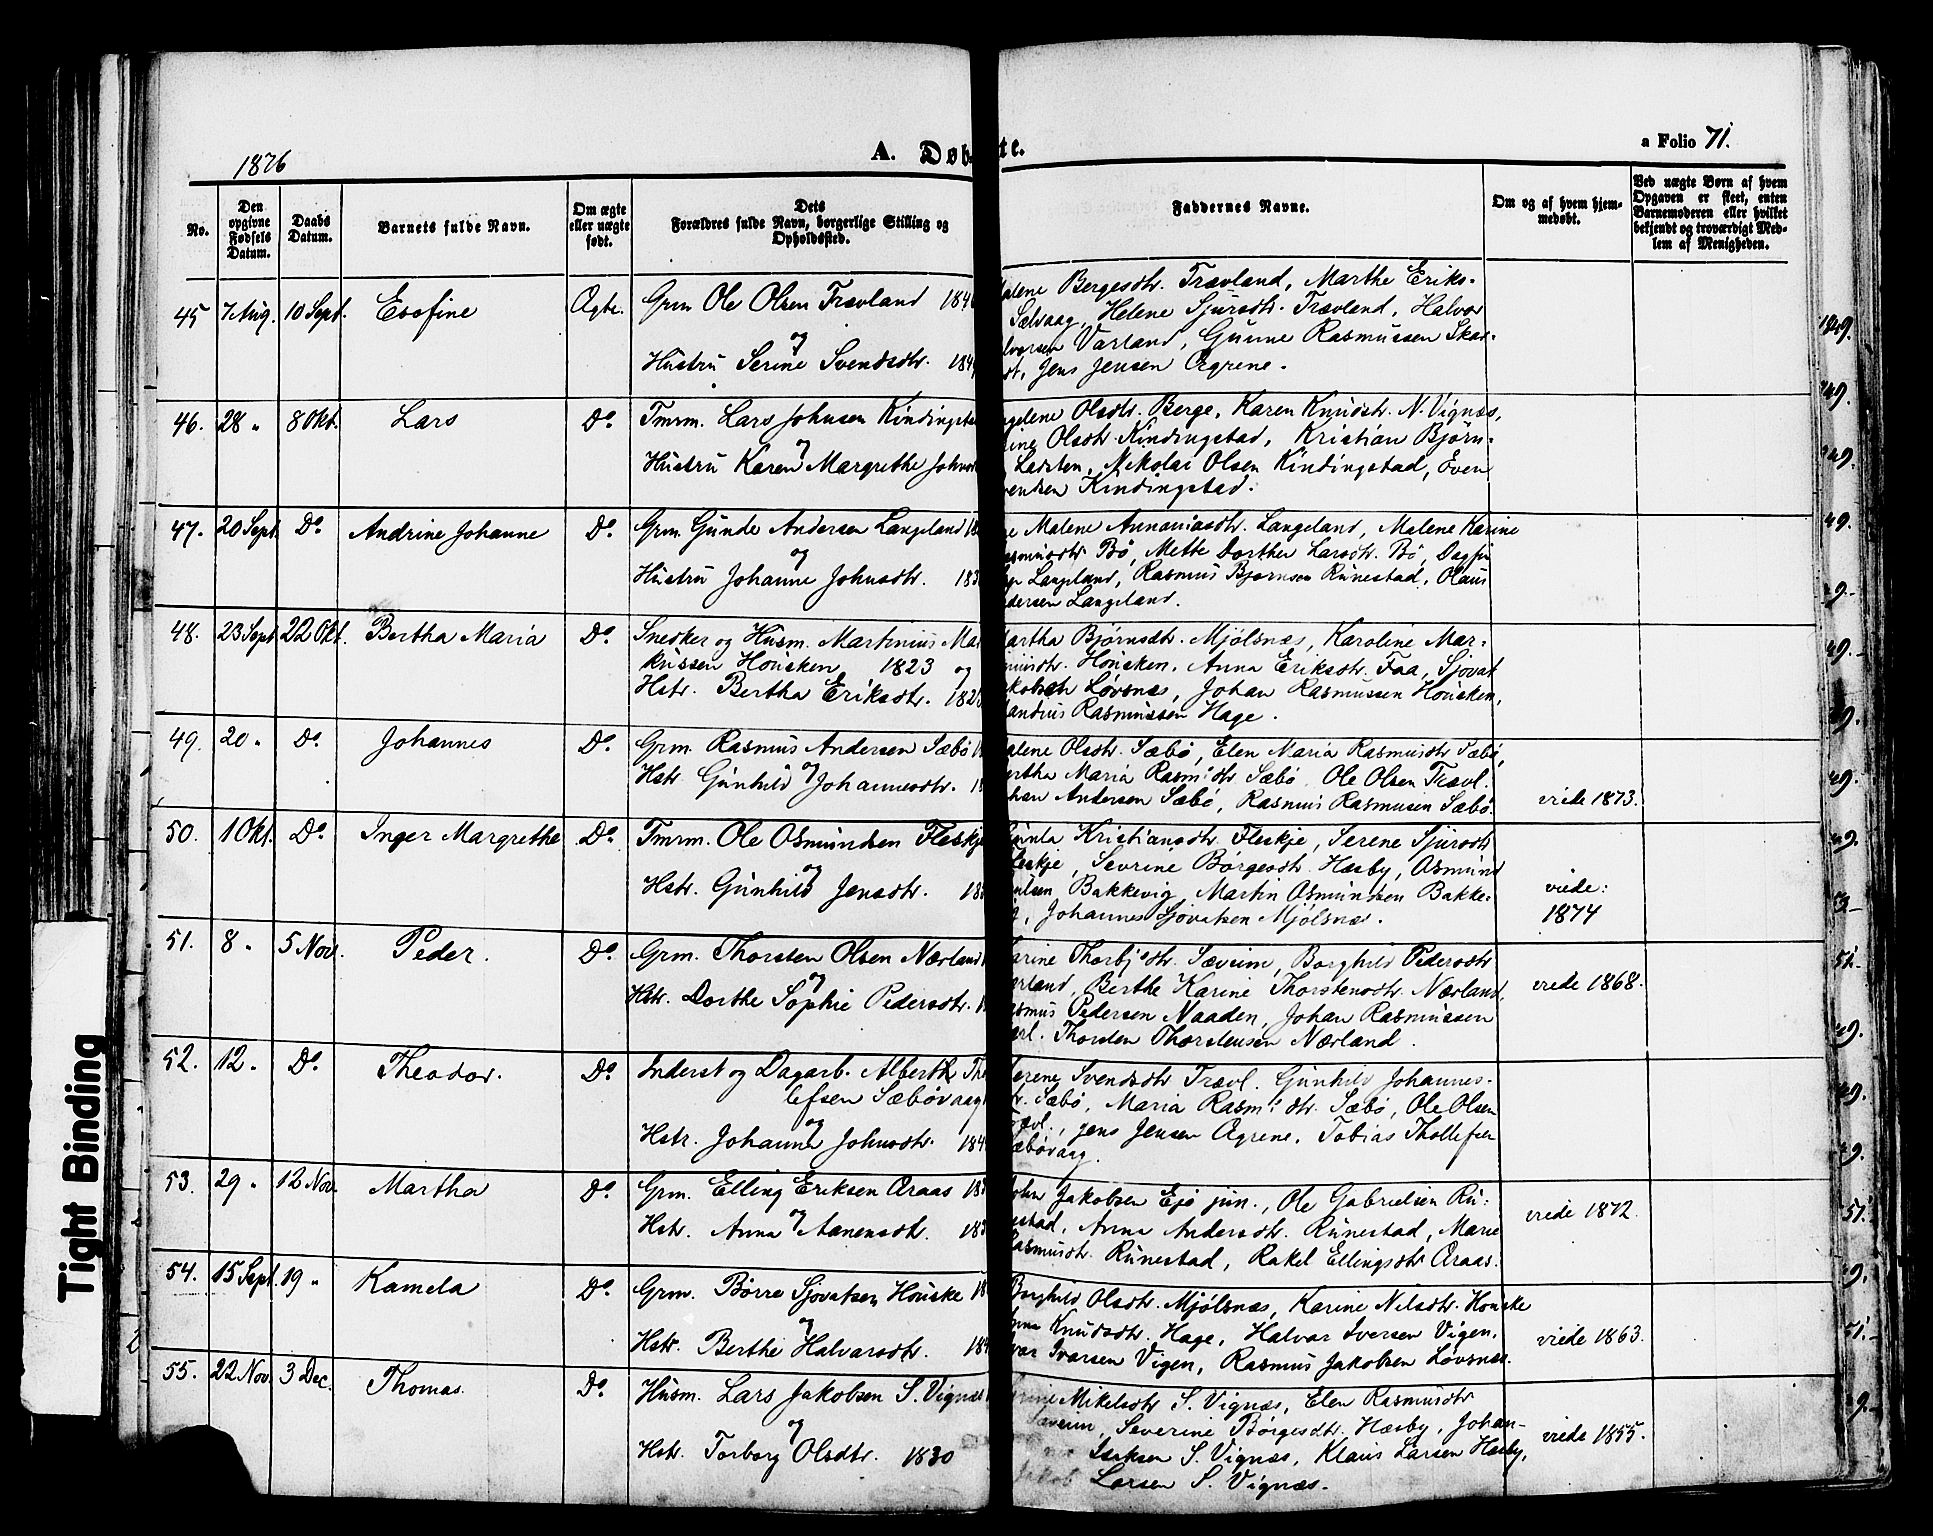 1876
A. Døb
te.
a Folio 71.
No.
Den opgivne Fødsels Datum.
Daabs Datum.
Barnets fulde Navn.
Om ægte eller uægte født.
Dets Forældres fulde Navn, borgerlige Stilling og Opholdssted.
Faddernes Navne.
Om og af hvem hjemmedøbt.
Ved uægte Børn af hvem Opgaven er skeet, enten Barnemoderen eller hvilket bekjendt og troværdigt Medlem af Menigheden.
45 7 Aug. 10 Sept. Esofine Ægte. Grm Ole Olsen Trævland
og
Hustru Serine Svendsdtr.
alene Bergesdtr. Trævland, Marthe Eriks-
Sælvaag, Helene Sjursdtr. Trævland, Halvor
lvorsen Varland, Gunne Rasmussen Skar-
dt, Jens Jensen Ægrene.
46. 28 " 8 Okt. Lars Do. Tmrm. Lars Johnsen Kindingsta
og
Hustru Karen Margrethe Johnsd
ngelene Olsdtr. Berge, Karen Knudsdtr. N. Vignæs,
ine Olsdtr Kindingstad, Kristian Bjørn-
Ladsten, Nikolai Olsen Kindingstad, Even
vendsen Kindingstad.
47. 20 Sept. Do. Andrine Johanne Do. Grm. Gunde Andersen Langeland
og
Hustru Johanne Johnsdtr.
Malene Annaniasdtr. Langeland, Malene Karine
asmusdtr Bø, Mette Dorthea Larsdtr. Bø, Dagfin
Langeland, Rasmus Bjørnsen Runestad, Olaus
ndersen Langeland.
48. 23 Sept 22 Okt. Bertha Maria Do. Snedker og Husm. Martinius Mar
kussen Housken 1823 og
Hstr. Bertha Eriksdtr.
artha Bjørnsdtr. Mjølsnæs, Karoline Mar-
Housken, Anna Eriksdtr. Faa, Sjovat
akobsen Løvsnæs, Johan Rasmussen Housken,
Rasmussen Hage.
49. 20 " Do. Johannes Do. Grm. Rasmus Andersen Sæbø
og
Hstr. Gunhild Johannesdtr.
alene Olsdtr. Sæbø, Elen Maria Rasmusdtr Sæbø,
ertha Maria Rasm:dtr Sæbø, Ole Olsen Trævl.
ohan Andersen Sæbø, Rasmus Rasmusen Sæbø.
viede 1873.
50. 1 Okt. Do. Inger Margrethe Do. Tmrm. Ole Osmundsen Fleskje
og
Hstr. Gunhild Jensdtr.
Kristiansdtr. Fleskje, Serene Sjursdtr
leskje, Severine Børgesdtr. Hæsby, Osmund
Bakkevig, Martin Osmundsen Bakke-
g, Johannes Sjovatsen Mjølsnæs.
viede:
1874
51. 8 " 5 Nov. Peder. Do. Grm. Thorsten Olsen Nærland
og
Hstr. Dorthe Sophie Pedersdtr.
arine Thorbj:dtr. Sævheim, Borghild Pedersdtr
ærland, Berthe Karine Thorstensdtr. Nærland,
asmus Pedersen Naaden, Johan Rasmussen
ærl. Thorsten Thorstensen Nærland.
viede 1868.
52. 12. " Do. Theodor. Do. Inderst og Dagarb. Alberth The
lefsen Sæbøvaag
og
Hstr. Johanne Johnsdtr.
erene Svendsdtr Trævl. Gunhild Johannes-
tr. Sæbø, Maria Rasm:dtr. Sæbø, Ole Olsen
rævl., Jens Jensen Ægrene, Tobias Thollefsen
æbøvaag.
53. 29 " 12 Nov. Martha Do. Grm. Elling Eriksen Araas
og
Hstr. Anna Aanensdtr.
ohn Jakobsen Ejø jun., Ole Gabrielsen Ru-
nestad, Anna Andersdtr. Runestad, Marie
Rasmusdtr. Runestad, Rakel Ellingsdtr Araas.
viede 1872.
54. 15 Sept. 19 " Kamela Do. Grm. Børre Sjovatsen Houske
og
Hstr. Berthe Halvarsdtr.
Borghild Olsdtr. Mjølsnæs, Karine Nilsdtr. Houske
Knudsdtr. Hage, Halvar Iversen Vigen,
var Ivarsen Vigen, Rasmus Jakobsen Løvsnæs.
viede 1863.
55. 22 Nov. 3 Dec. Thomas. Do. Husm. Lars Jakobsen S. Vignæs
og
Hstr. Torborg Olsdtr. 1830
Mikelsdtr S. Vignæs, Elen Rasmusdtr
Sævheim, Severine Børgesdtr. Hæsby, Johan-
Isaksen S. Vignæs, Klaus Larsen Hæsby,
Jakob Larsen S. Vignæs.
viede 1855.
Tight Binding